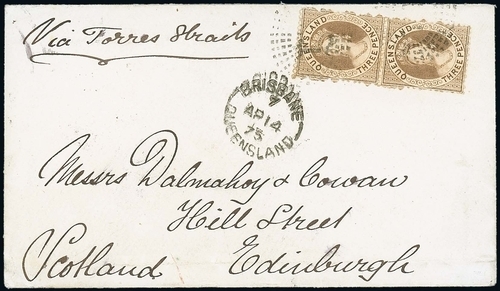 Via Torres Straits
QUEENSLAND
THREE PENCE
QUEENSLAND
THREE PENCE
BRISBANE
7
AP 14
75
QUEENSLAND
Messrs Dalmahoy & Cowan
Hill Street
Edinburgh
Scotland